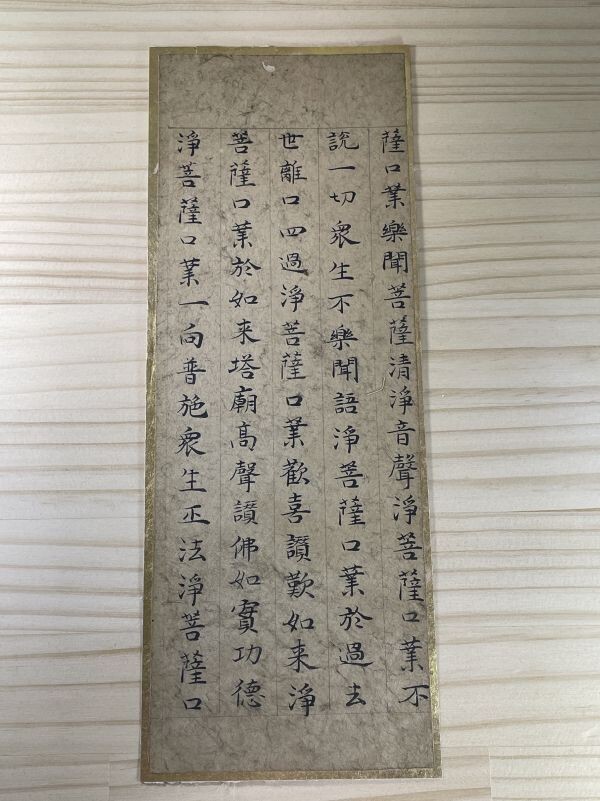 薩口業樂聞菩薩清淨音聲淨菩薩口業不
説一切衆生不樂聞語淨菩薩口業於過去
世離口四過淨菩薩口業歡喜讃歎如来淨
菩薩口業於如来塔廟髙聲讃佛如實功德
淨菩薩口業一向普施衆生正法淨菩薩口